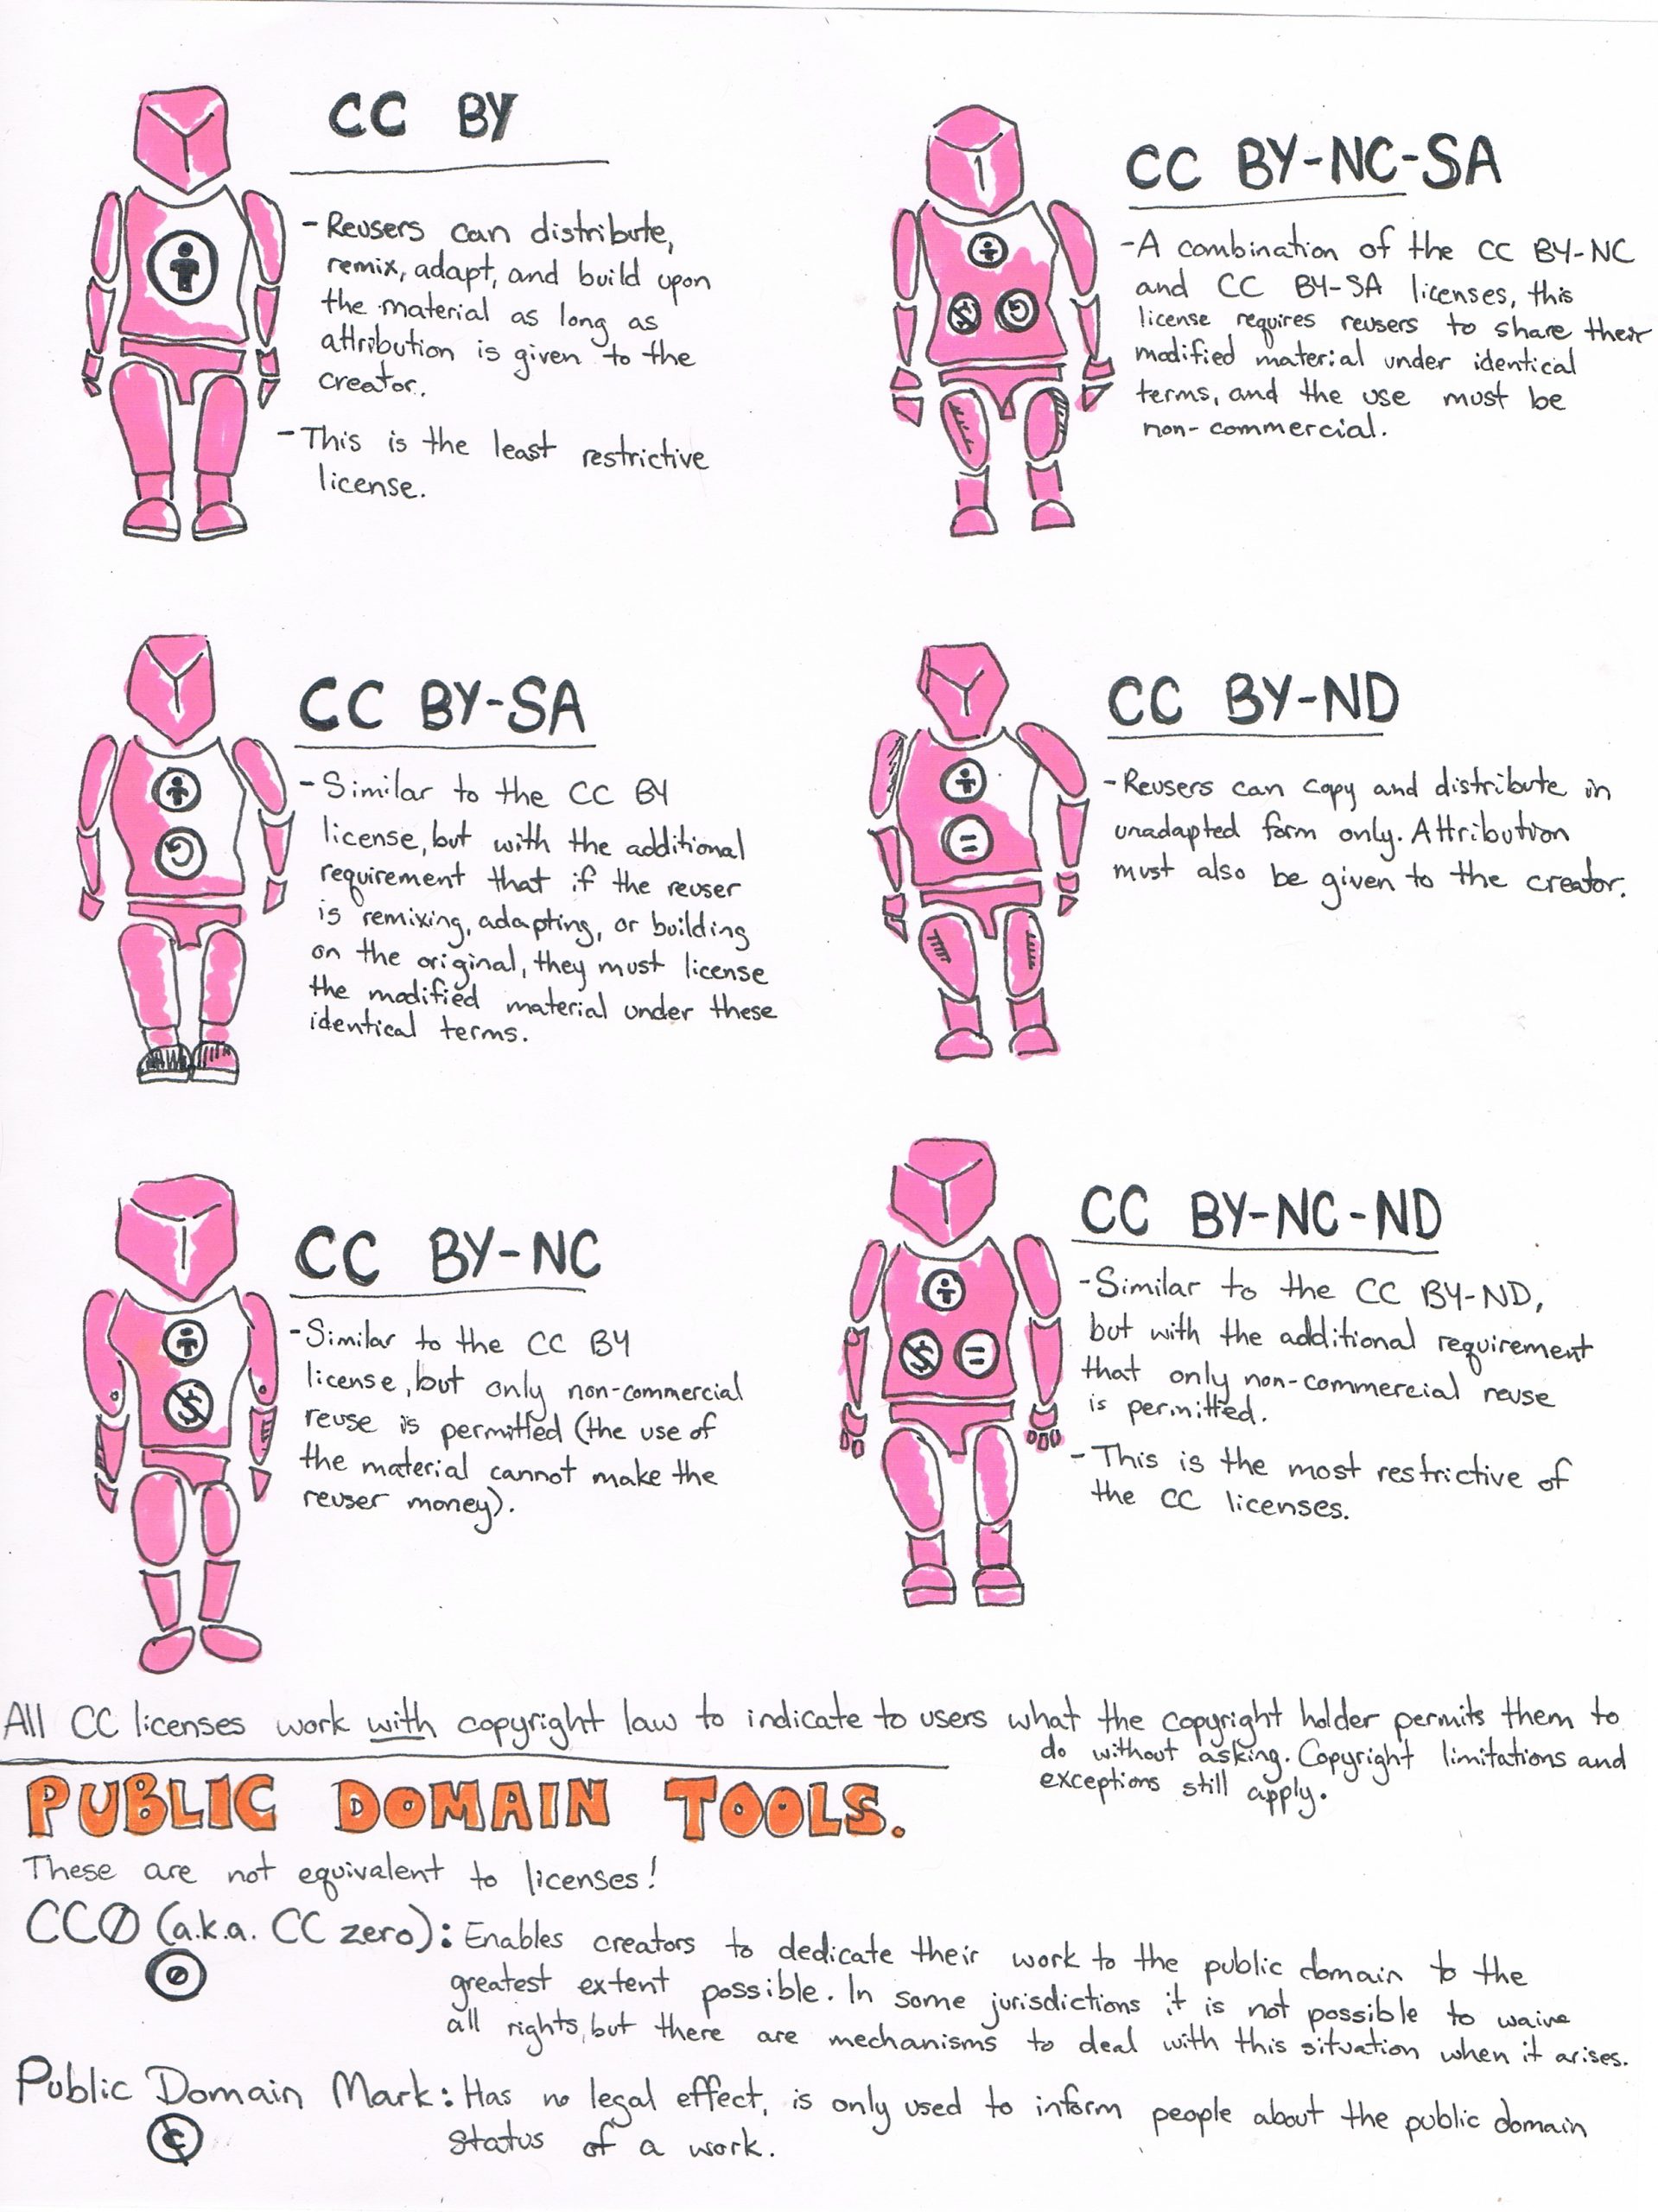 CC BY
- Reusers can distribute,
remix, adapt, and build upon
the material as long as
attribution is given to the
creator.
- This is the least restrictive
license.
CC BY-NC-SA
- A combination of the CC BY-NC
and CC BY-SA licenses, this
license requires reusers to share their
modified material under identical
terms, and the use must be
non-commercial.
CC BY-SA
- Similar to the CC BY
license, but with the additional
requirement that if the reuser
is remixing, adapting, or building
on the original, they must license
the modified material under these
identical terms.
CC BY-ND
- Reusers can copy and distribute in
unadapted form only. Attribution
must also be given to the creator.
CC BY-NC
- Similar to the CC BY
license, but only non-commercial
reuse is permitted (the use of
the material cannot make the
reuser money).
CC BY-NC-ND
- Similar to the CC BY-ND,
but with the additional requirement
that only non-commercial reuse
is permitted.
- This is the most restrictive of
the CC licenses.
All CC licenses work with copyright law to indicate to users what the copyright holder permits them to
do without asking. Copyright limitations and
exceptions still apply.
PUBLIC DOMAIN TOOLS.
These are not equivalent to licenses!
CC0 (a.k.a. CC zero): Enables creators to dedicate their work to the public domain to the
greatest extent possible. In some jurisdictions it is not possible to waive
all rights, but there are mechanisms to deal with this situation when it arises.
Public Domain Mark: Has no legal effect, is only used to inform people about the public domain
status of a work.